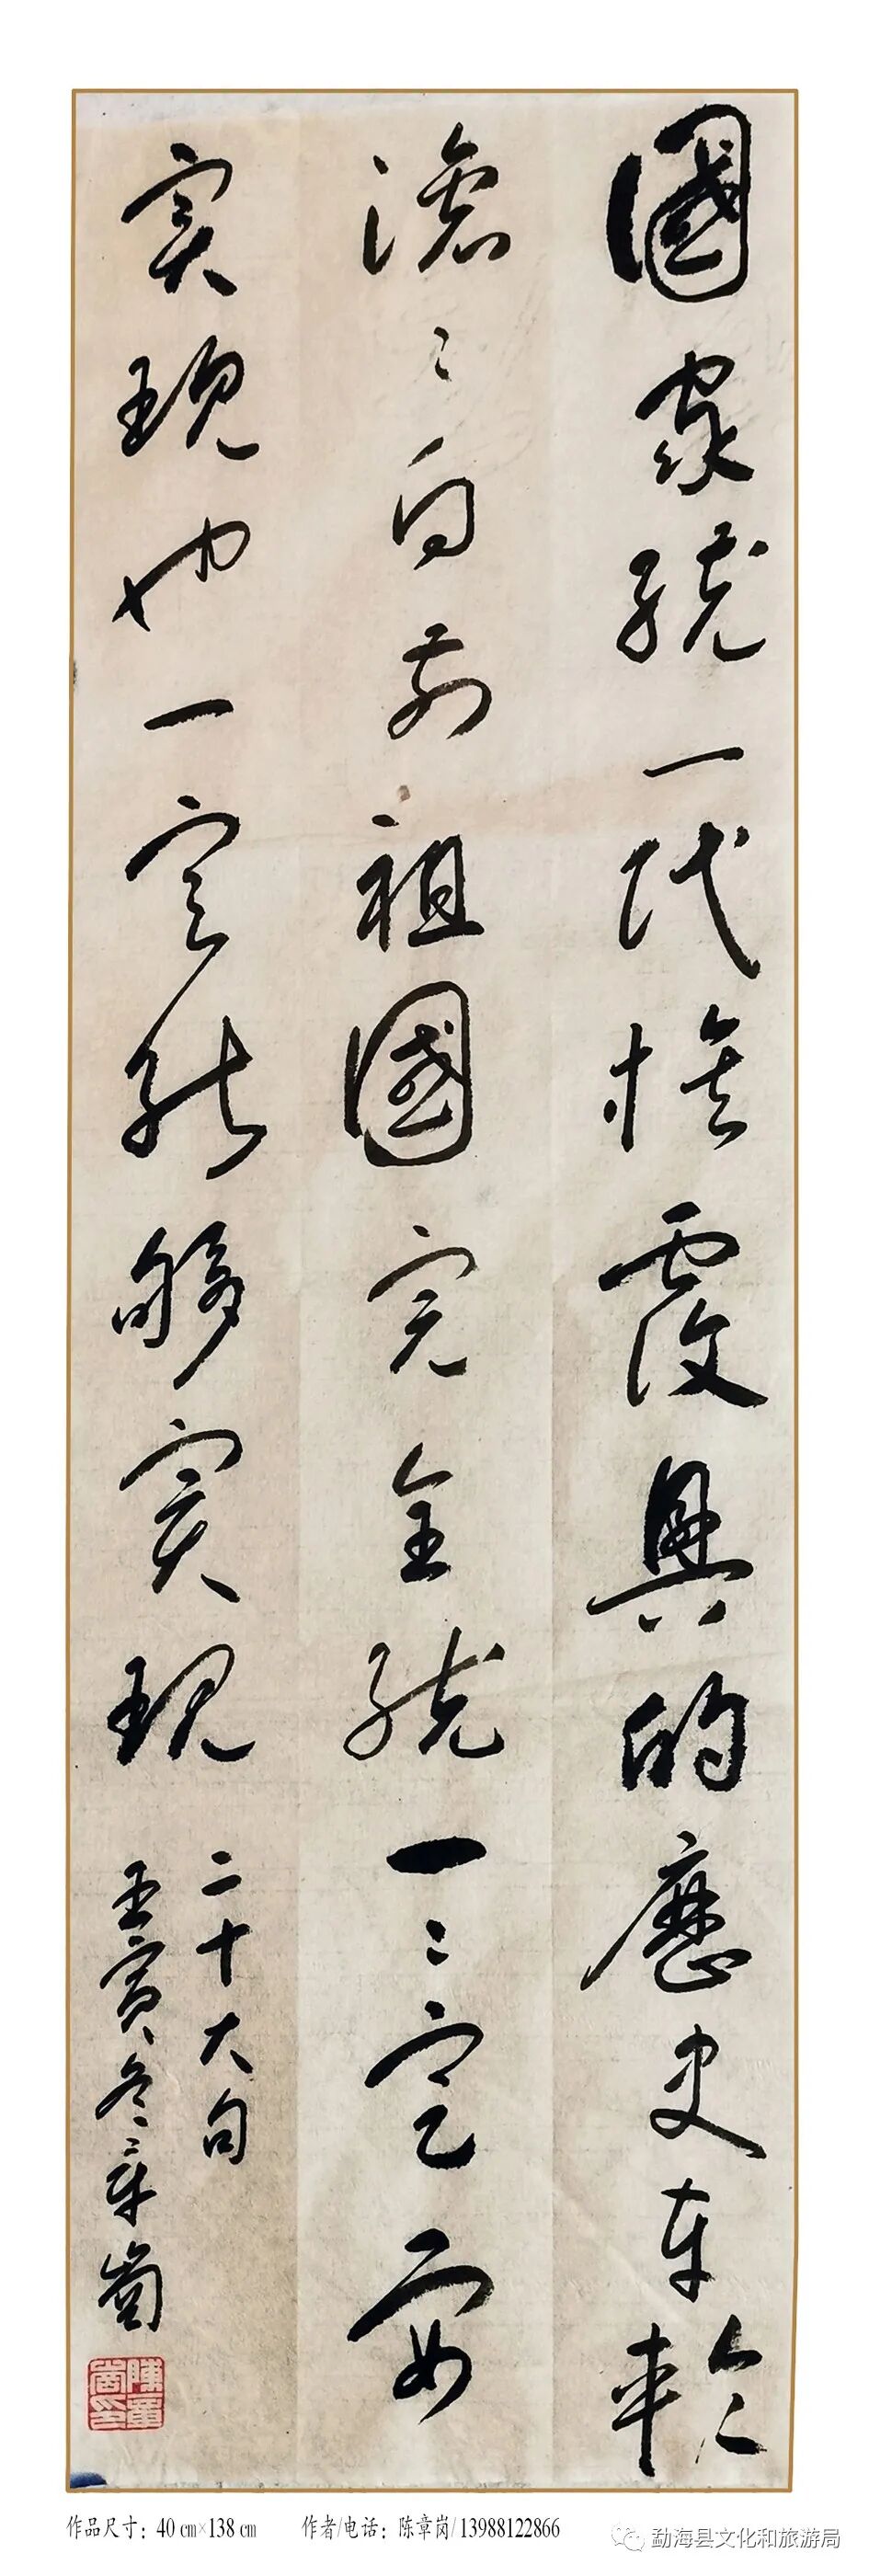 國家統一民族復興的歷史車輪
滚〻向前祖國完全統一〻定要
實現也一定能够實現
二十大句
壬寅冬章崗
陳章崗印
作品尺寸：40 cm×138 cm
作者/电话：陈章岗/13988122866
勐海县文化和旅游局